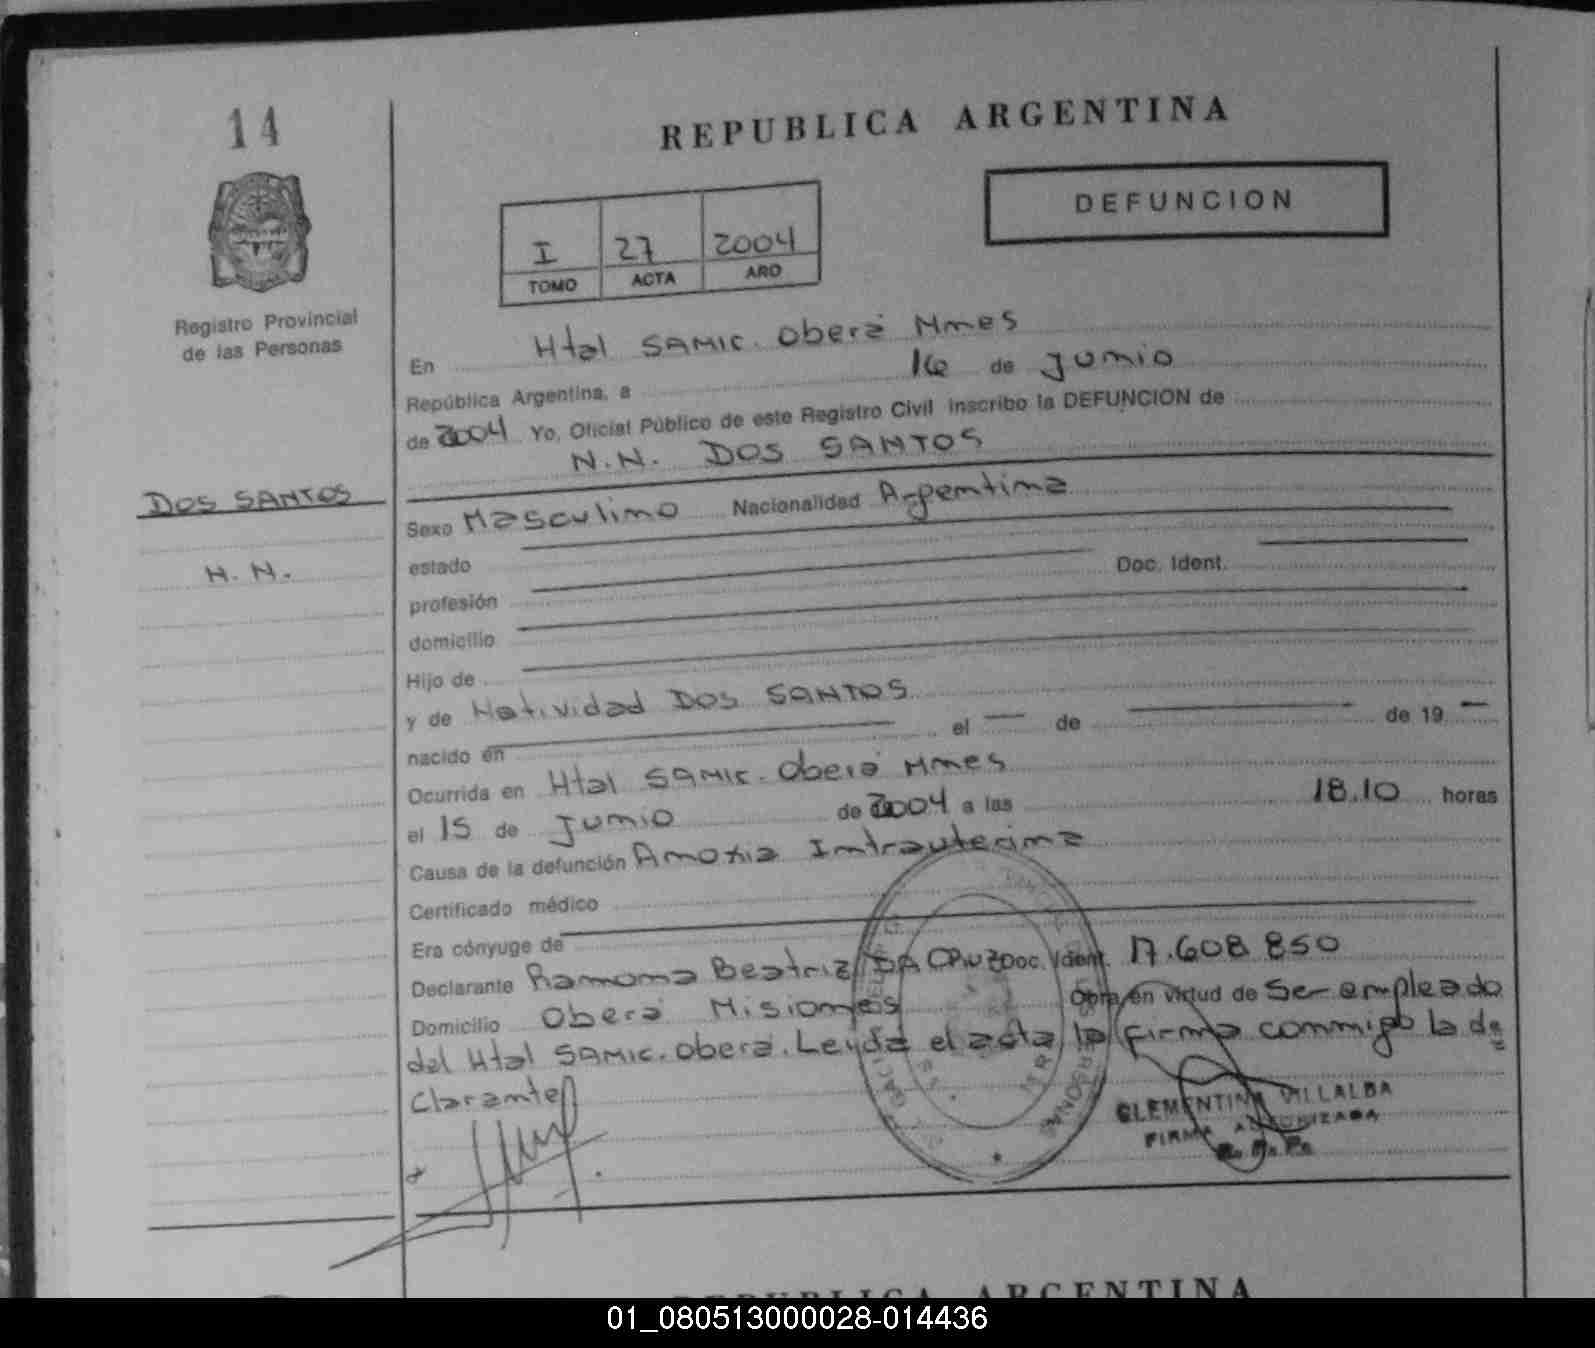 14
REPUBLICA ARGENTINA
DEFUNCION
I 27 2004
TOMO ACTA AÑO
Registro Provincial
de las Personas
En Htal SAMIC. Oberá Mnes
República Argentina, a 16 de Junio
de 2004 Yo, Oficial Público de este Registro Civil inscribo la DEFUNCION de
N.N. DOS SANTOS
DOS SANTOS
N. N.
Sexo Masculino Nacionalidad Argentina
estado
profesión Doc. Ident.
domicilio
Hijo de
y de Natividad DOS SANTOS
nacido en el — de — de 19 —
Ocurrida en Htal SAMIC. Oberá Mnes
el 15 de Junio de 2004 a las 18.10 horas
Causa de la defunción Anoxia Intrauterina
Certificado médico
Era cónyuge de
Declarante Ramona Beatriz DA CRUZ Doc. Ident. 17.608.850
Domicilio Oberá Misiones Obra en virtud de Ser empleado
del Htal SAMIC. Oberá. Leyda el acta la firma conmigo la de
clarante
CLEMENTINA VILLALBA
FIRMA AUTORIZADA
R. P. P.
REPUBLICA ARGENTINA
01_080513000028-014436